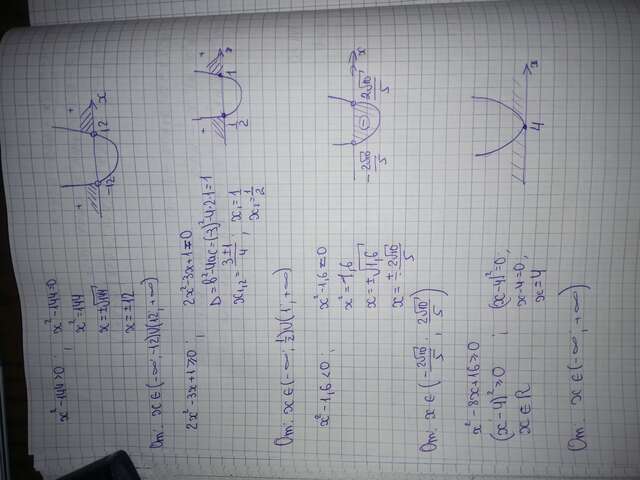 x²-144>0; x²-144=0
x²=144
x=±√144
x=±12
+ +
-12 12 x
От: x∈(-∞;-12)∪(12;+∞)
2x²-3x+1≥0; 2x²-3x+1=0
D=b²-4ac=(-3)²-4·2·1=1
x₁,₂=(3±1)/4; x₁=1/1
x₂=1/2
+ +
1/2 1 x
От: x∈(-∞;1/2)∪(1;+∞)
x²-1,6<0; x²-1,6=0
x²=1,6
x=±√1,6
x=±2√10/5
-2√10/5 2√10/5 x
От: x∈(-2√10/5; 2√10/5)
x²-8x+16≥0
(x-4)²≥0; (x-4)²=0;
x∈R x-4=0;
x=4
4 x
От: x∈(-∞;+∞)